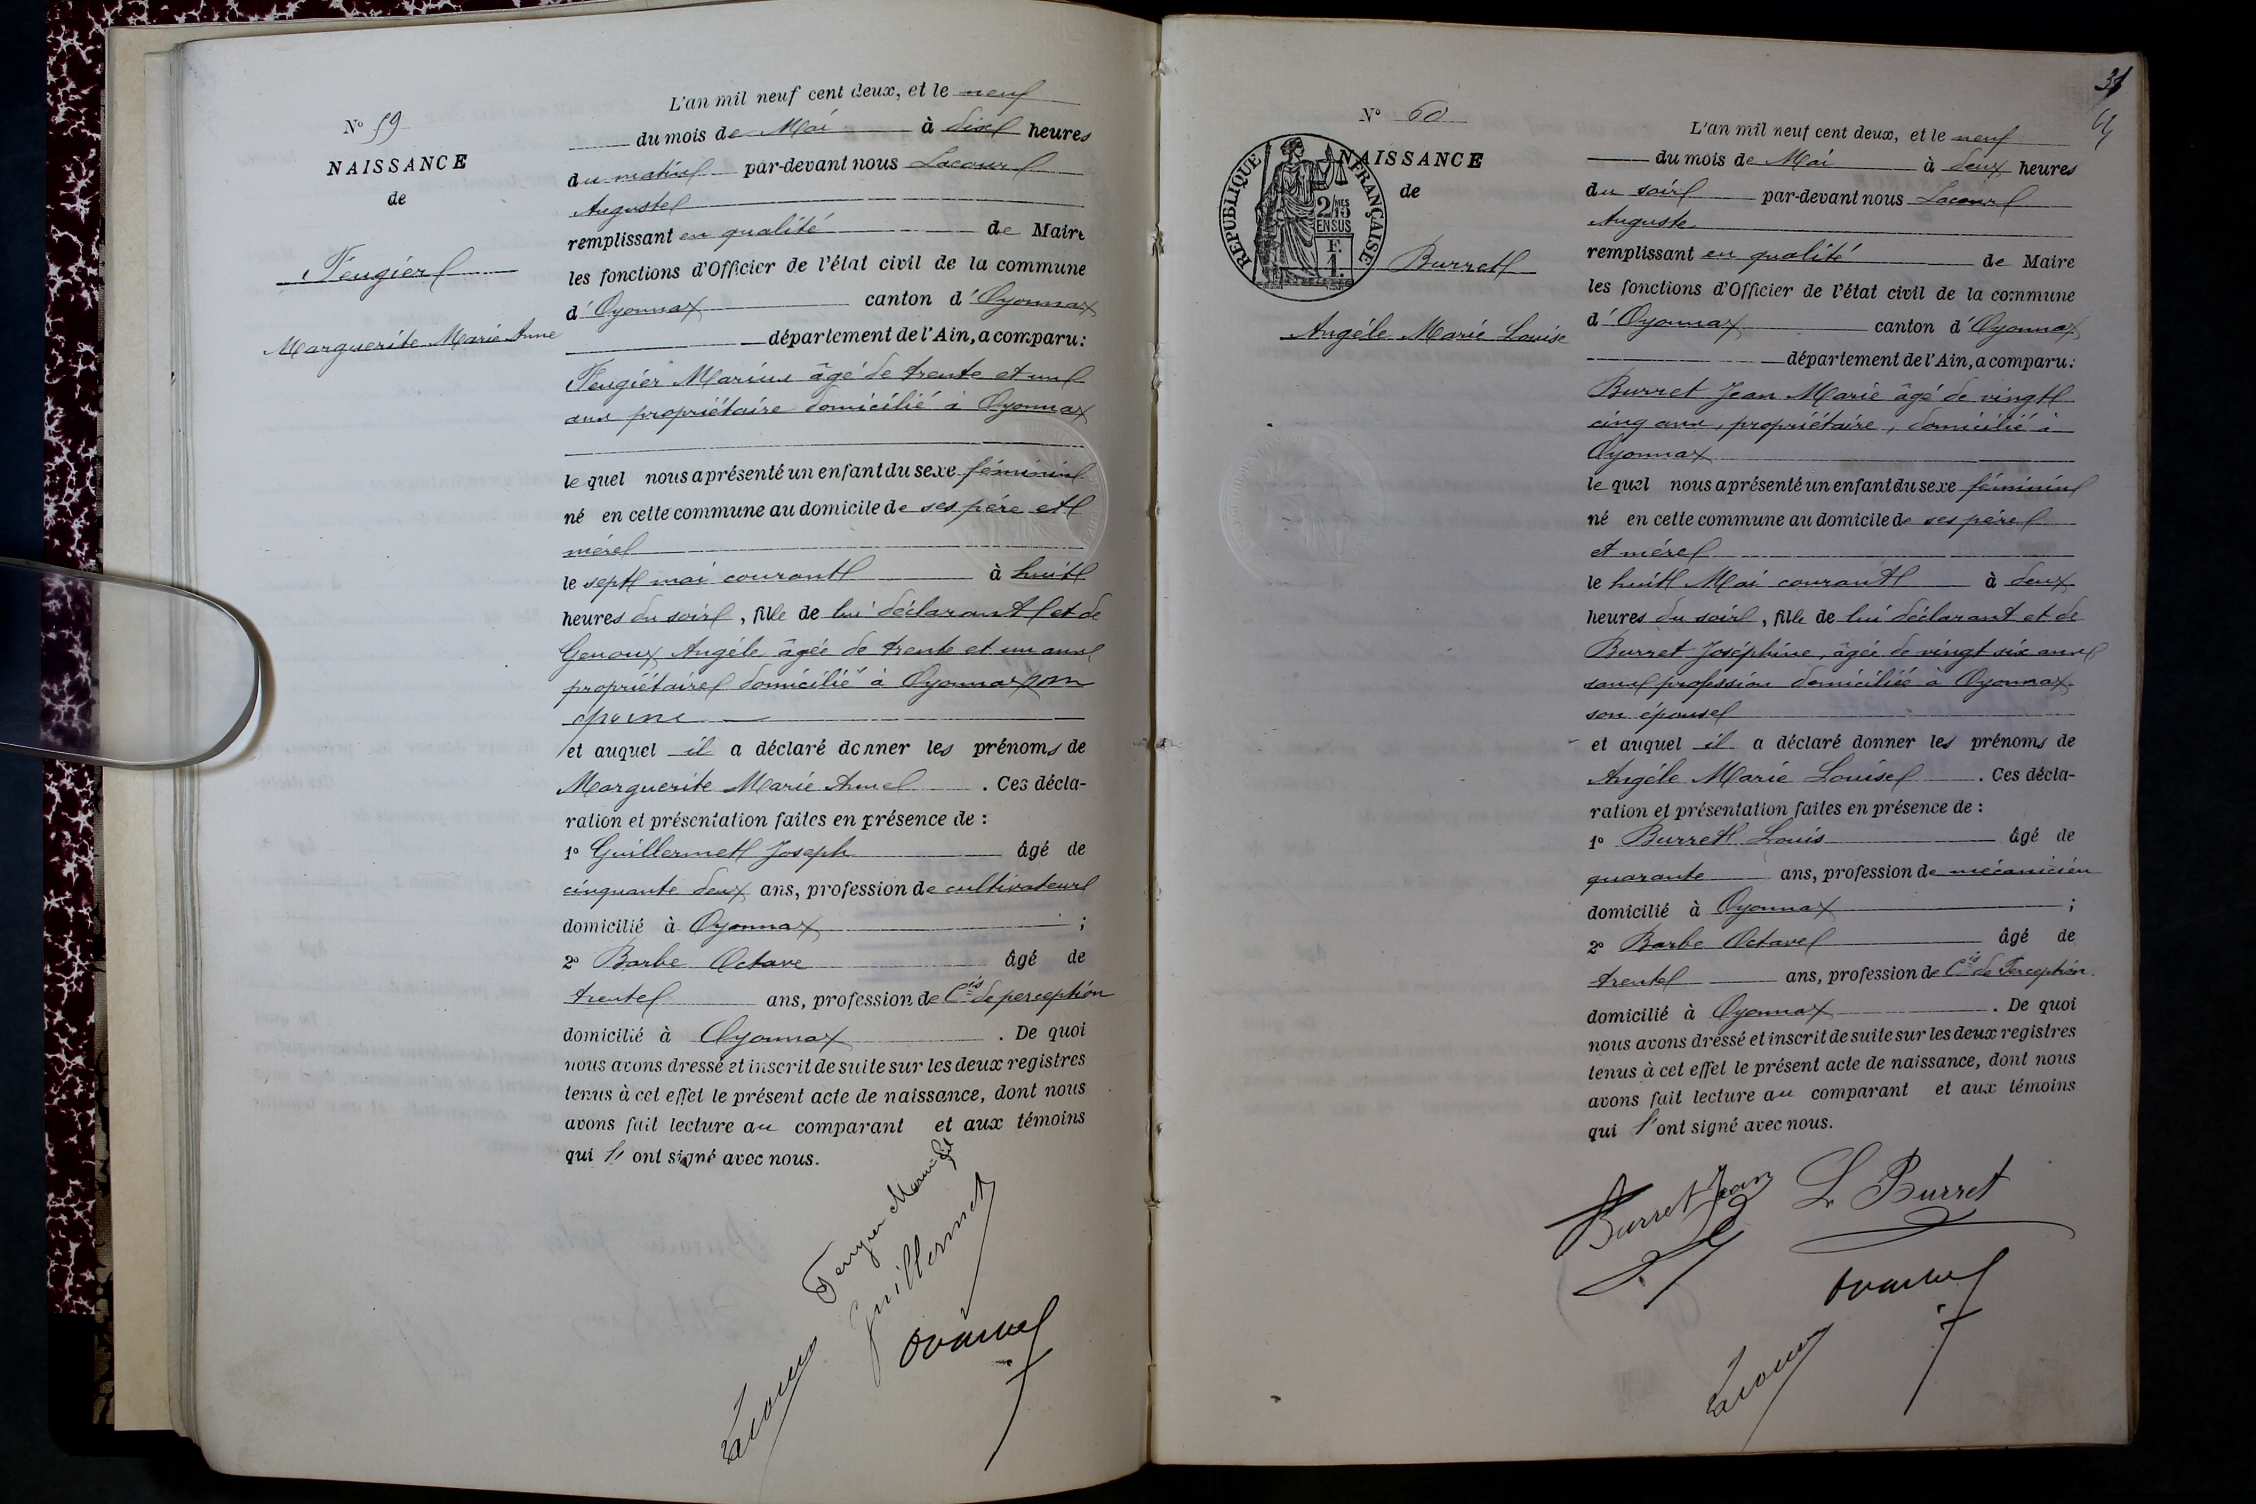 N° 59
NAISSANCE
de
Feugier
Marguerite Marie Anne
L'an mil neuf cent deux, et le neuf
du mois de Mai à dix heures
du matin par-devant nous Lacour
Auguste
remplissant en qualité de Maire
les fonctions d'Officier de l'état civil de la commune
d'Oyonnax canton d'Oyonnax
département de l'Ain, a comparu:
Feugier Marius âgé de trente et un
ans propriétaire domicilié à Oyonnax
le quel nous a présenté un enfant du sexe féminin
né en cette commune au domicile de ses père et
mère
le sept mai courant à huit
heures du soir, fille de lui déclarant et de
Genoux Angèle âgée de trente et un ans
propriétaire domicilié à Oyonnax son
épouse
et auquel il a déclaré donner les prénoms de
Marguerite Marie Anne. Ces décla-
ration et présentation faites en présence de :
1° Guillermet Joseph âgé de
cinquante deux ans, profession de cultivateur
domicilié à Oyonnax ;
2° Barbe Octave âgé de
trente ans, profession de Cis de perception
domicilié à Oyonnax. De quoi
nous avons dressé et inscrit de suite sur les deux registres
tenus à cet effet le présent acte de naissance, dont nous
avons fait lecture au comparant et aux témoins
qui l'ont signé avec nous.
Feugier Marius
Guillermet
Lacour
31
N° 60
RÉPUBLIQUE FRANÇAISE
2/10ES
EN SUS
F.
1.
NAISSANCE
de
Burret
Angèle Marie Louise
L'an mil neuf cent deux, et le neuf
du mois de Mai à deux heures
du soir par-devant nous Lacour
Auguste
remplissant en qualité de Maire
les fonctions d'Officier de l'état civil de la commune
d'Oyonnax canton d'Oyonnax
département de l'Ain, a comparu:
Burret Jean Marie âgé de vingt
cinq ans, propriétaire, domicilié à
Oyonnax
le quel nous a présenté un enfant du sexe féminin
né en cette commune au domicile de ses père
et mère
le huit Mai courant à deux
heures du soir, fille de lui déclarant et de
Burret Joséphine, âgée de vingt six ans
sans profession domiciliée à Oyonnax
son épouse
et auquel il a déclaré donner les prénoms de
Angèle Marie Louise. Ces décla-
ration et présentation faites en présence de :
1° Burret Louis âgé de
quarante ans, profession de mécanicien
domicilié à Oyonnax ;
2° Barbe Octave âgé de
trente ans, profession de Cis de Perception
domicilié à Oyonnax. De quoi
nous avons dressé et inscrit de suite sur les deux registres
tenus à cet effet le présent acte de naissance, dont nous
avons fait lecture au comparant et aux témoins
qui l'ont signé avec nous.
Burret Jean L. Burret
Lacour